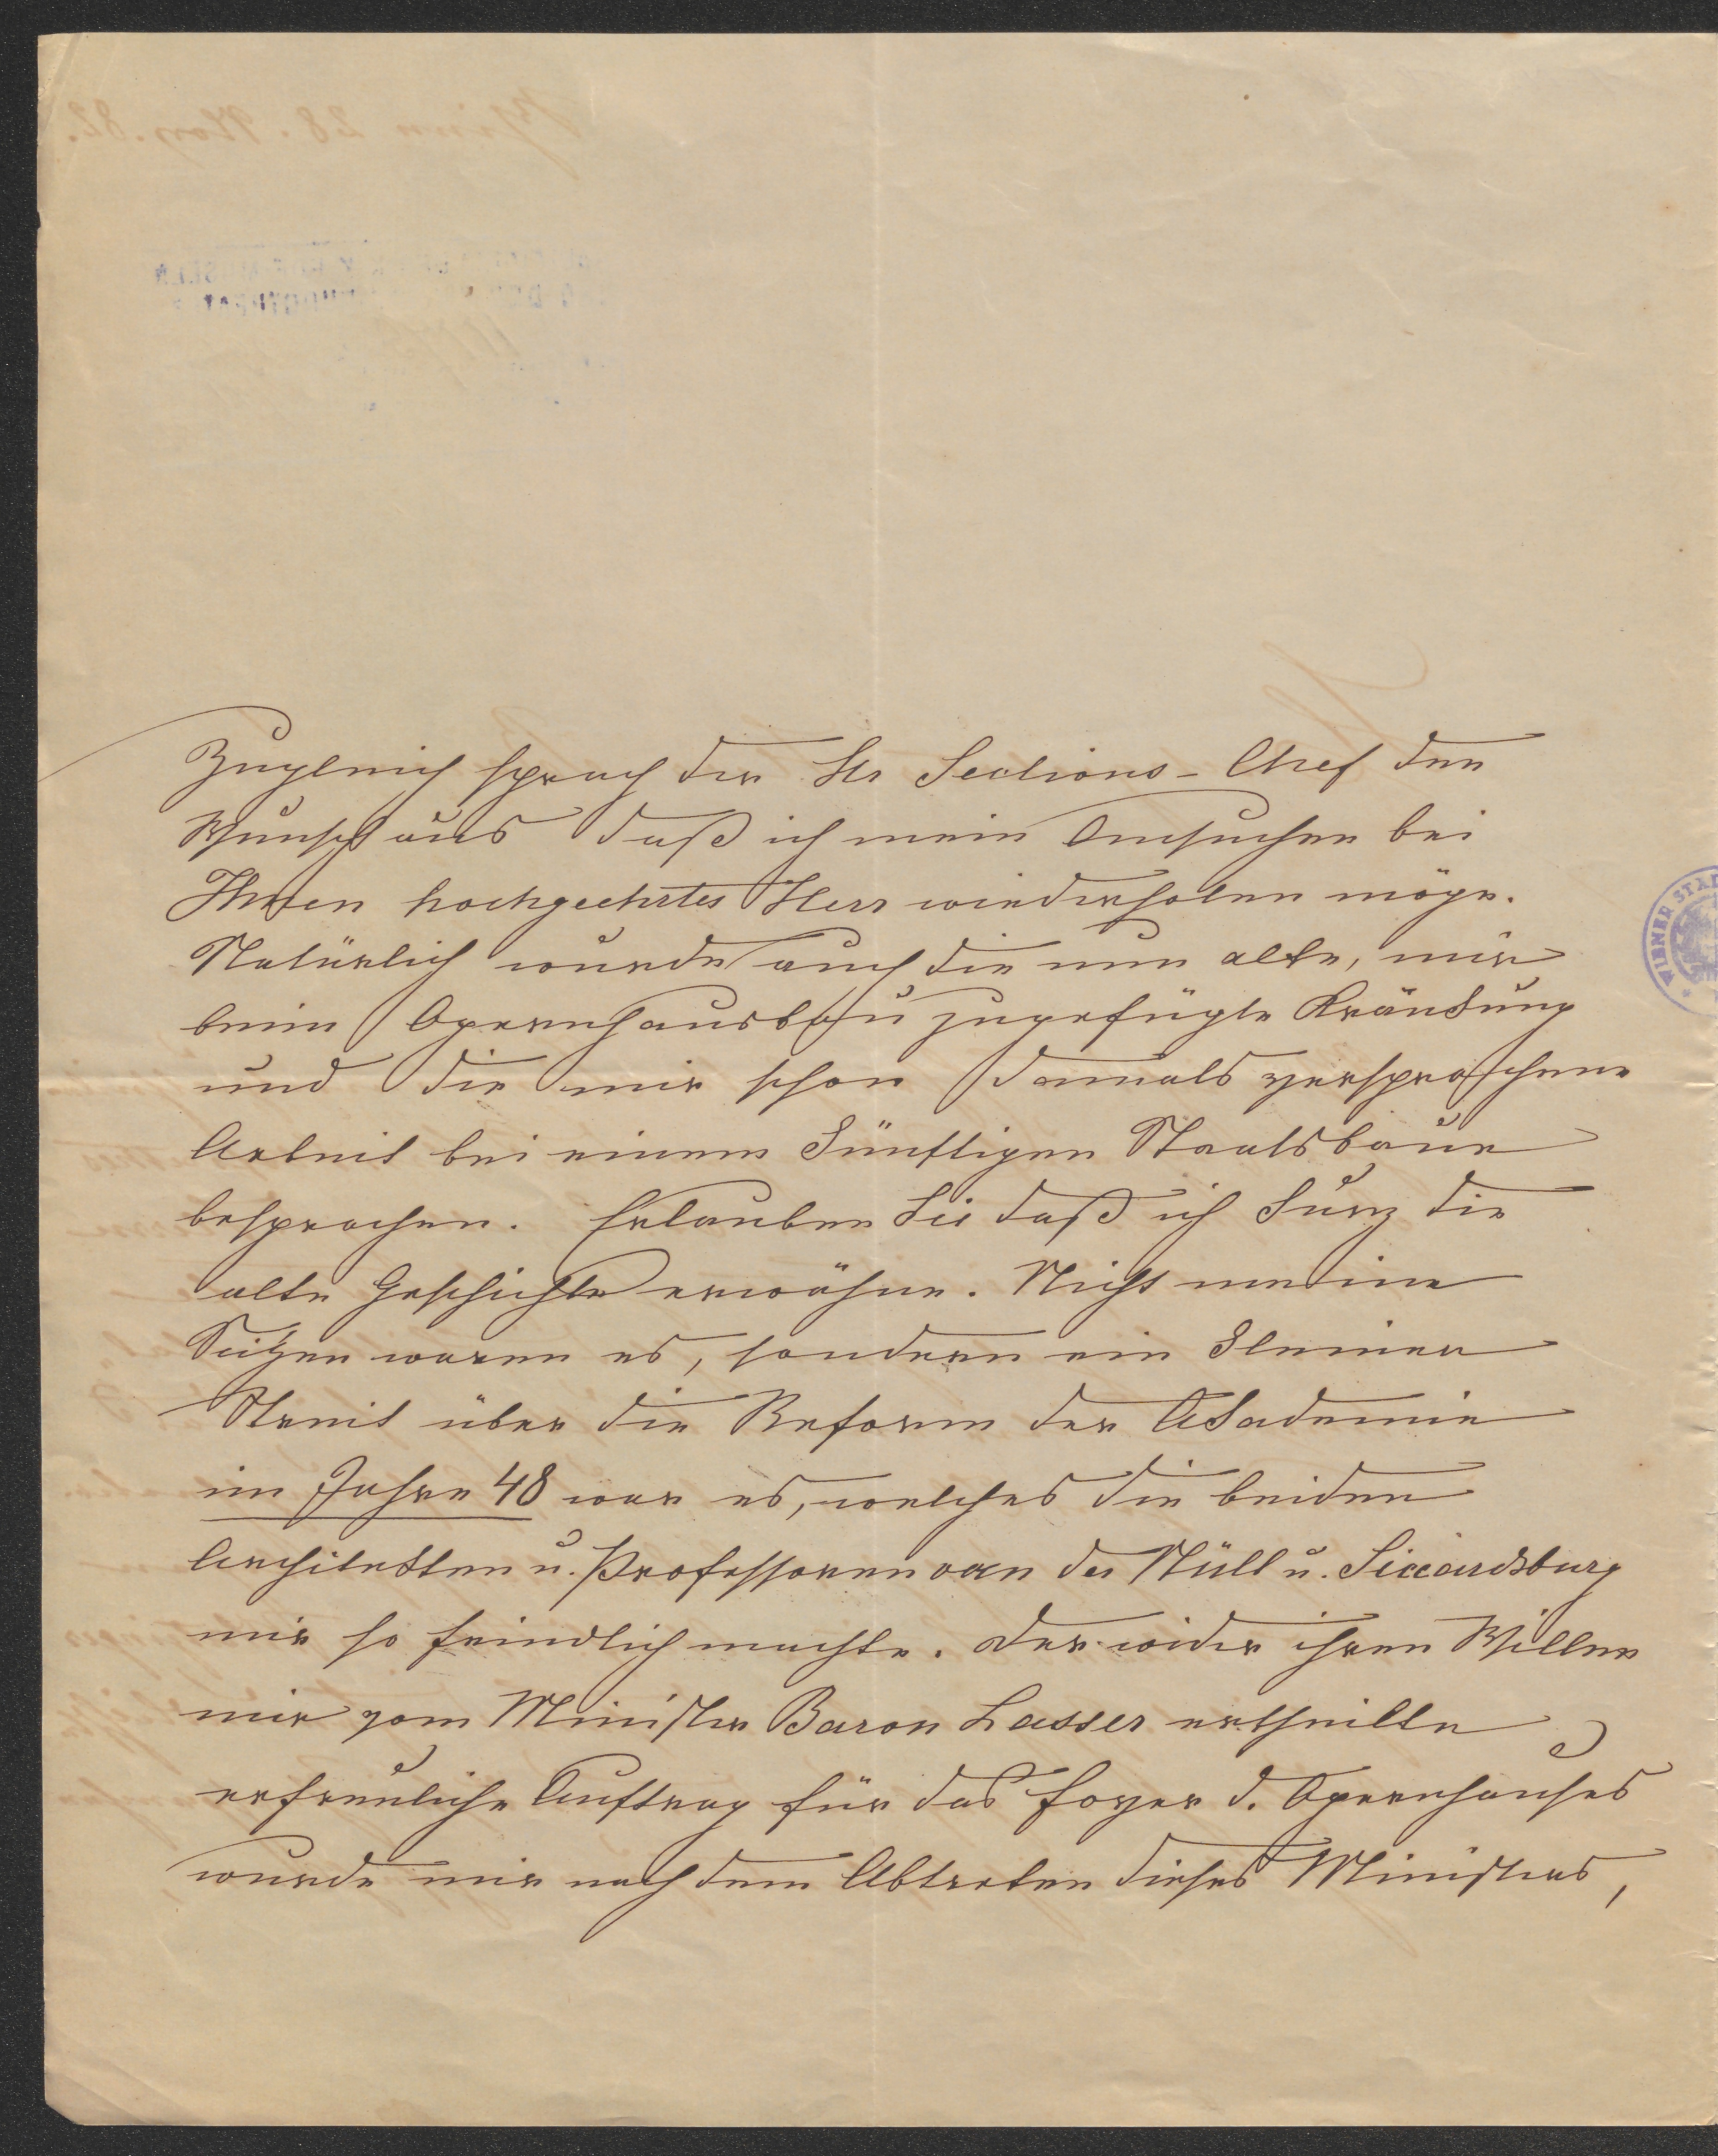 Zugleich sprach der Hr Sections-Chef den
Wunsch aus daß ich mein Ansuchen bei
Ihnen hochgeehrtes Herr wiederholen möge.
Natürlich wurde auch die nun alte, mir
beim Opernhausbau zugefügte Kränkung
und die mir schon damals versprochene
Arbeit bei einem künftigen Staatsbaue
besprochen. Erlauben Sie daß ich kurz die
alte Geschichte erwähne. Nicht meine
Skitzen waren es, sondern ein kleiner
Streit über die Reform der Akademie
im Jahre 48 war es, welches die beiden
Architekten u. Professoren van der Nüll u. Siccardsburg
mir so feindlich machte. Der wider ihren Willen
mir vom Minister Baron Lasser ertheilte
erfreuliche Auftrag für das Foyer d. Opernhauses
wurde mir nach dem Abtreten dieses Ministers,
WIENER STAD